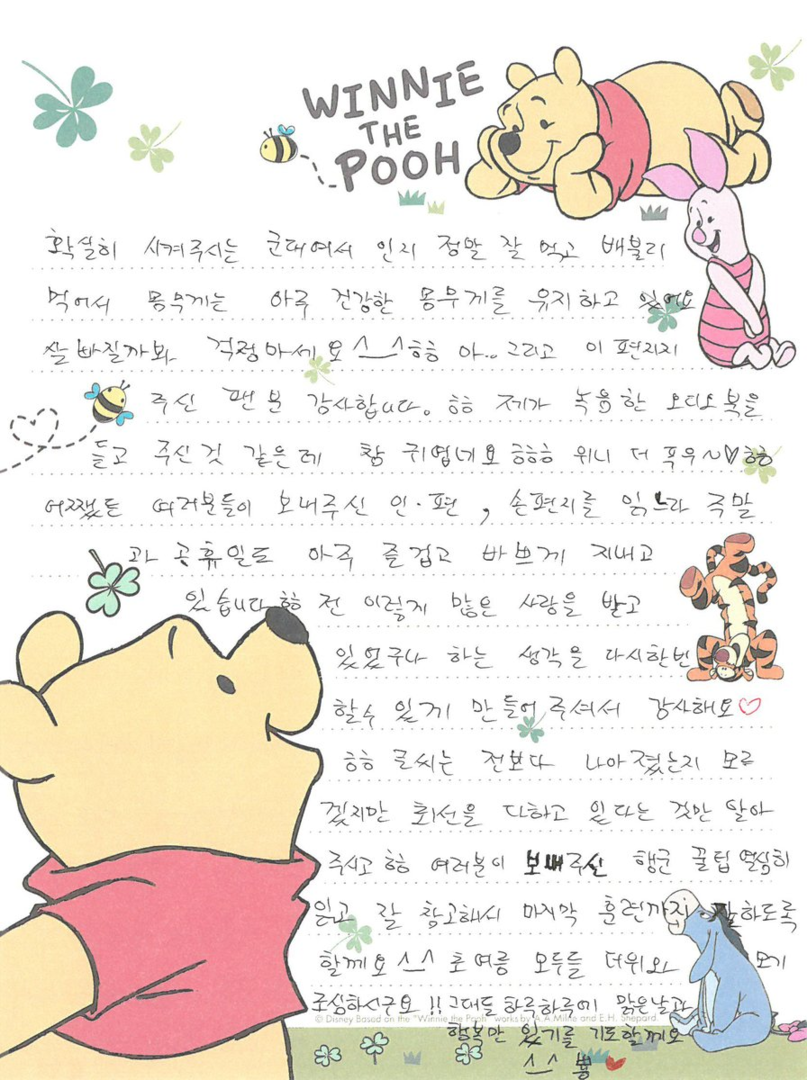 WINNIE
THE
POOH
확실히 시켜주시는 군대여서 인지 정말 잘 먹고 배불리
먹어서 몸무게는 아주 건강한 몸무게를 유지하고 있어요
살빠질까봐 걱정마세요^_^ㅎㅎ 아.. 그리고 이 편지지
주신 팬분 감사합니다. ㅎㅎ 제가 녹음한 오디오북을
듣고 주신것 같은데 참 귀엽네요 ㅎㅎㅎ 위니 더 푸우~♡ㅎㅎ
어쨌든 여러분들이 보내주신 인·편, 손편지를 읽느라 주말
과 공휴일도 아주 즐겁고 바쁘게 지내고
있습니다 ㅎㅎ 전 이렇게 많은 사랑을 받고
있었구나 하는 생각을 다시한번
할수 있게 만들어 주셔서 감사해요♡
ㅎㅎ 글씨는 전보다 나아졌는지 모르
겠지만 최선을 다하고 있다는 것만 알아
주시고 ㅎㅎ 여러분이 보내주신 행군 꿀팁 열심히
읽고 잘 참고해서 마지막 훈련까지 잘하도록
할께요 ^_^ 초여름 모두들 더위와 모기
조심하시구요 !! 그대들 하루하루에 맑은날과
© Disney Based on the "Winnie the Pooh" works by A.A.Milne and E.H. Shepard
행복만 있기를 기도할께요
^_^ 뿅 ♥